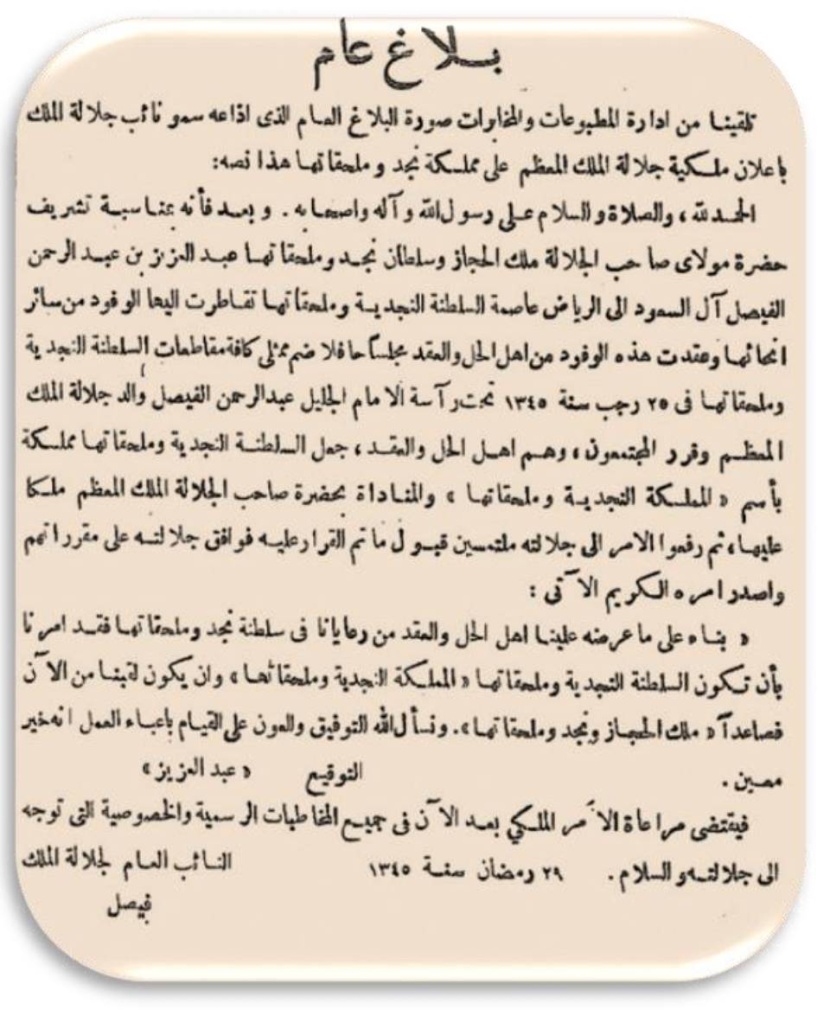 بلاغ عام
تلقينا من ادارة المطبوعات والمخابرات صورة البلاغ العام الذى اذاعه سمو نائب جلالة الملك
باعلان ملكية جلالة الملك المعظم على مملكة نجد وملحقاتها هذا نصه:
الحمد لله، والصلاة والسلام على رسول الله وآله واصحابه. وبعد فأنه بمناسبة تشريف
حضرة مولاى صاحب الجلالة ملك الحجاز وسلطان نجد وملحقاتها عبد العزيز بن عبد الرحمن
الفيصل آل السعود الى الرياض عاصمة السلطنة النجدية وملحقاتها تقاطرت اليها الوفود من سائر
انحائها وعقدت هذه الوفود من اهل الحل والعقد مجلساً حافلا ضم ممثلى كافة مقاطعات السلطنة النجدية
وملحقاتها فى ٢٥ رجب سنة ١٣٤٥ تحت رآسة الامام الجليل عبدالرحمن الفيصل والد جلالة الملك
المعظم وقرر المجتمعون، وهم اهل الحل والعقد، جعل السلطنة النجدية وملحقاتها مملكة
بأسم «المملكة النجدية وملحقاتها» والمناداة بحضرة صاحب الجلالة الملك المعظم ملكا
عليها، ثم رفعوا الامر الى جلالته ملتمسين قبول ماتم القرار عليه فوافق جلالته على مقرراتهم
واصدر امره الكريم الآتى:
« بناء على ما عرضه علينا اهل الحل والعقد من رعايانا فى سلطنة نجد وملحقاتها فقد امرنا
بأن تكون السلطنة النجدية وملحقاتها «المملكة النجدية وملحقاتها» وان يكون لقبنا من الآن
فصاعدآ «ملك الحجاز ونجد وملحقاتها». ونسأل الله التوفيق والعون على القيام باعباء العمل انه خير
معين. التوقيع «عبد العزيز»
فيقتضى مراعاة الأمر الملكي بعد الآن فى جميع المخاطبات الرسمية والخصوصية التى توجه
الى جلالته والسلام. ٢٩ رمضان سنة ١٣٤٥ النائب العام لجلالة الملك
فيصل